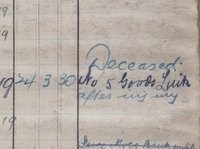 Deceased.
1924 3 30 No 5 Goods Link
after injury
19